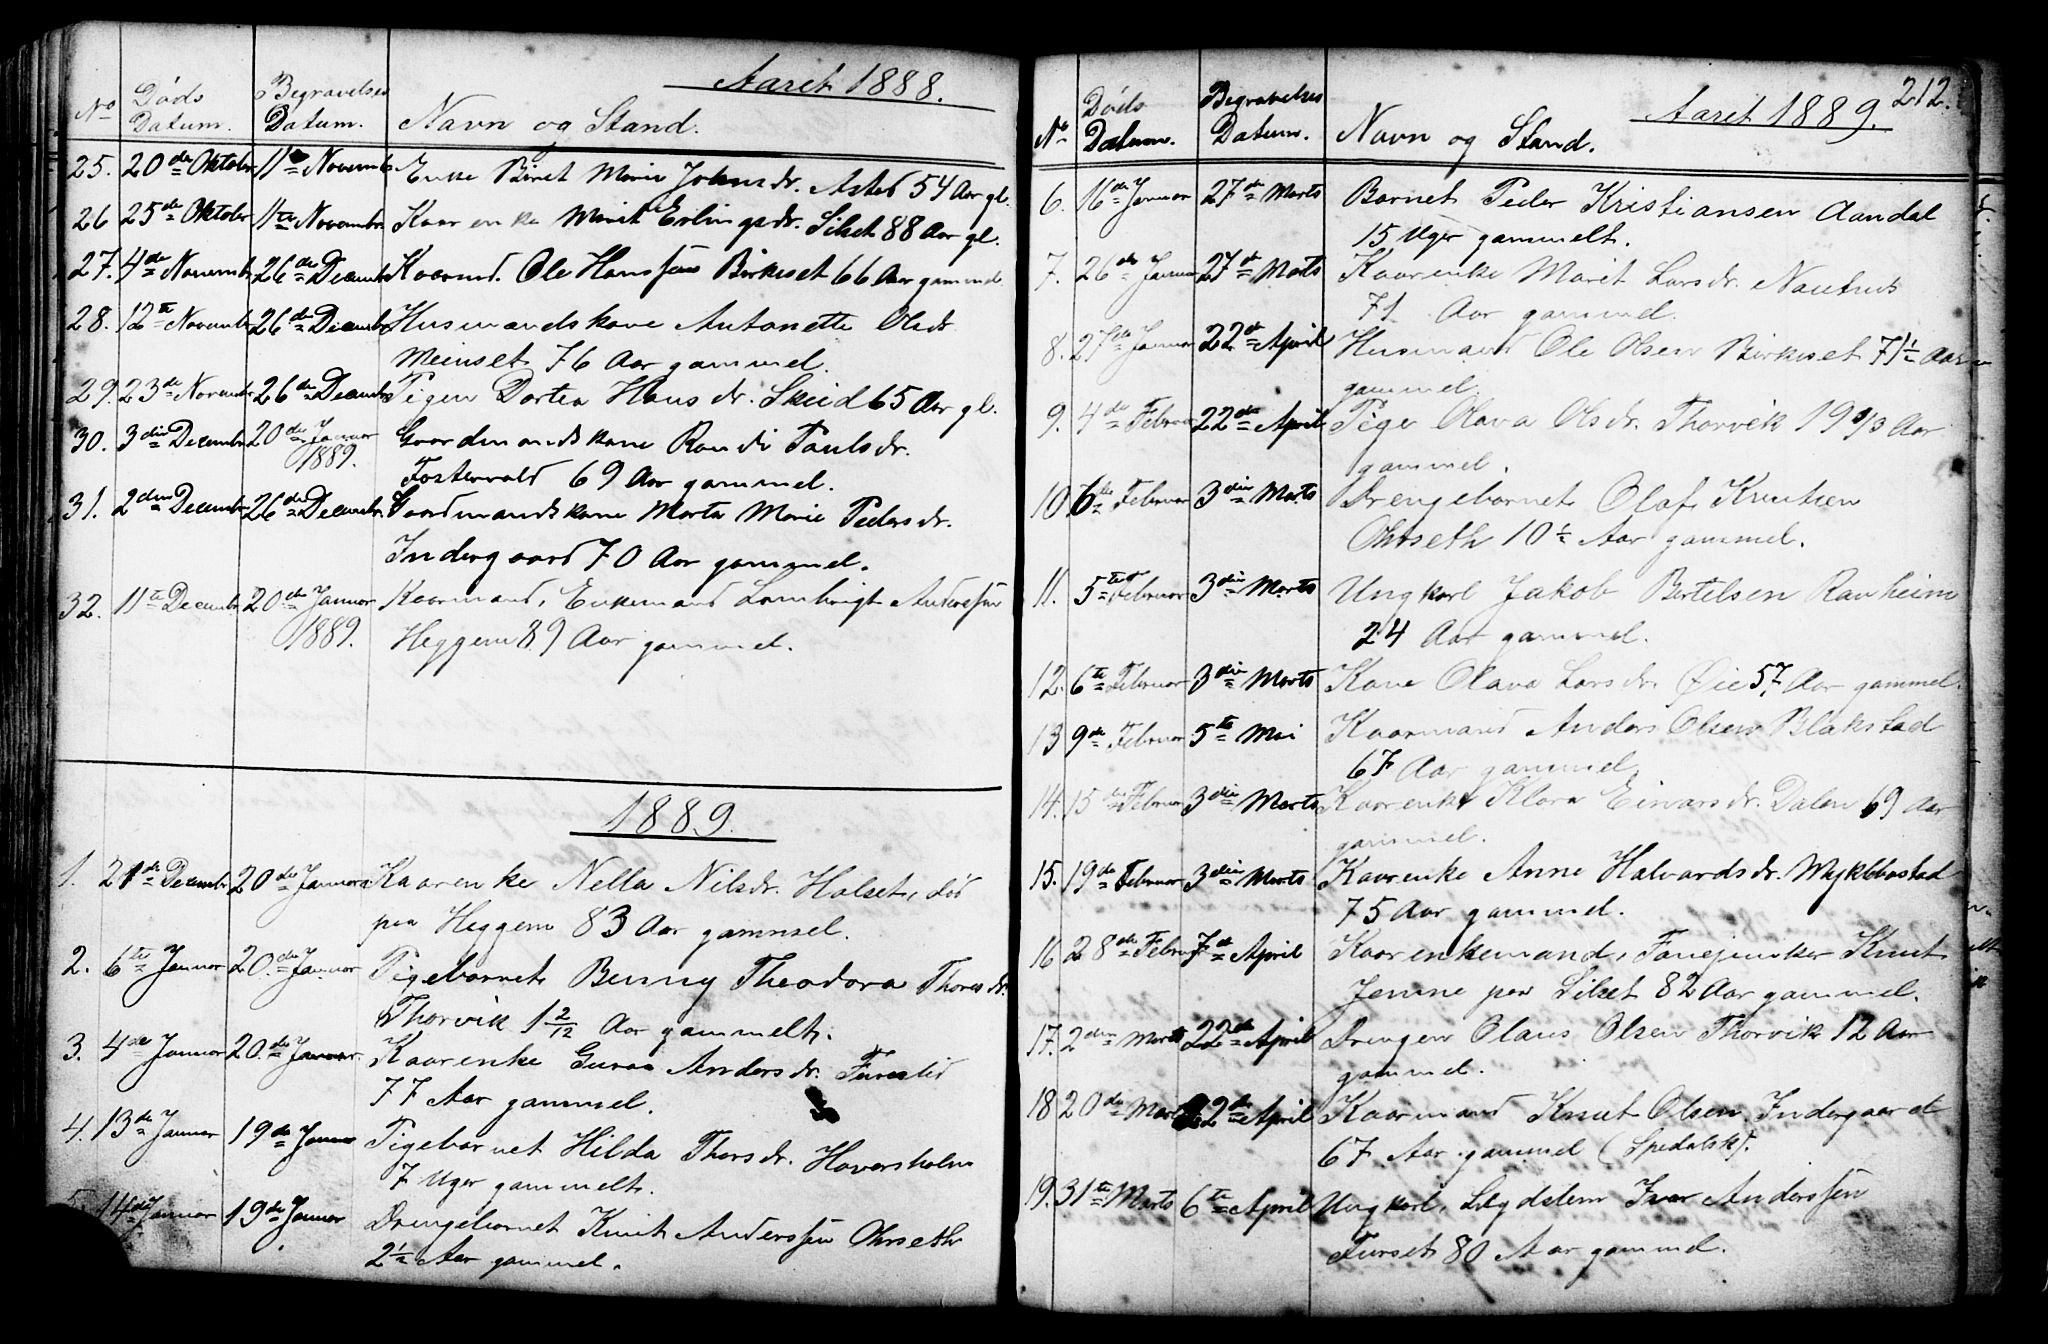 Aaret 1888.
No Döds Datum. Begravelses Datum. Navn og Stand.
25. 20de Oktobr 11te Novemb Enke Beret Marie Johnsdr. Astad 54 Aar gl.
26 25de Oktobr 11te Novembr. Kaarenke Marit Erlingsdr. Silset 88 Aar gl.
27. 4de Novembr. 26de Decembr Kaarmd. Ole Hanssen Birkeset 66 Aar gammel
28. 12te Novembr 26de Decembr Husmandskone Antonette Olsdr.
Meinset 76 Aar gammel.
29. 23de Novembr 26de Decembr Pigen Dortea Hansdr. Skeid 65 Aar gl.
30. 3die Decembr 20de Januar Gaardmandskone Randi Paulsdr.
1889. Fostervold 69 Aar gammel.
31. 2den Decembr 26de Decembr. Gaardmandskone Marta Marie Pedersdr.
Indergaard 70 Aar gammel.
32. 11te Decembr 20.de Januar Kaarmand, Enkemand Lambrigt Anderssen
1889. Heggem 89 Aar gammel.
1889.
1. 21de Decembr 20de Januar Kaarenke Nella Nilsdr. Halset, död
paa Heggem 83 Aar gammel.
2. 6te Januar 20.de Januar Pigebarnet Benny Theodora Thoresdr.
Thorvik 1 2/12 Aar gammelt.
3. 4de Januar 20.de Januar. Kaarenke Guroe Andersdr. Furelid
77 Aar gammel.
4. 13de Januar 19de Januar Pigebarnet Hilda Thorsdr. Haversholm
7 Uger gammelt.
5. 14de Januar 19de Januar Drengebarnet Knut Anderssen Ohrseth
2 1/2 Aar gammel.
212.
Aaret 1889.
No Döds Datum. Begravelses Datum. Navn og Stand.
6. 16de Januar 27de Marts Barnet Peder Kristiansen Aandal
15 Uger gammelt.
7. 26de Januar 27de Marts Kaarenke Marit Larsdr.
71 Aar gammel.
8. 27de Januar 22de April Husmand Ole Olsen Birkeset 71 1/2 Aar
gammel.
9. 4de Februar 22de April Pige Olava Olsdr. Thorvik 19 9/3 Aar
gammel.
10 6te Februar 3die Marts Drengebarnet Olaf Knutsen
Ohrseth 10 1/2 Aar gammel.
11. 5te Februar 3die Marts Ungkarl Jakob Bertelsen Ranheim
24 Aar gammel.
12. 6te Februar 3die Marts Kone Olava Larsdr. Øie 57 Aar gammel.
13 9de Februar 5te Mai Kaarmand Anders Olsen Blakstad
67 Aar gammel.
14. 15de Februar 3die Marts Kaarenke Klara Einarsdr. Dalen 69 Aar
gammel.
15. 19de Februar 3die Marts Kaarenke Anne Halvardsdr. Myklebostad
75 Aar gammel.
16 28de Febru 7de April Kaarenkemand, Fanejunker Knut
Jenme paa Silset 82 Aar gammel.
17. 2den Marts 22de April Drengen Olaus Olsen Thorvik 12 Aar
gammel.
18 20de Mart 22de April Kaarmand Knut Olsen Indergaard
67 Aar gammel (Spedalsk).
19. 31te Marts 6te April Ungkarl, Lægdslem Ivar Anderssen
Furset 80 Aar gammel.